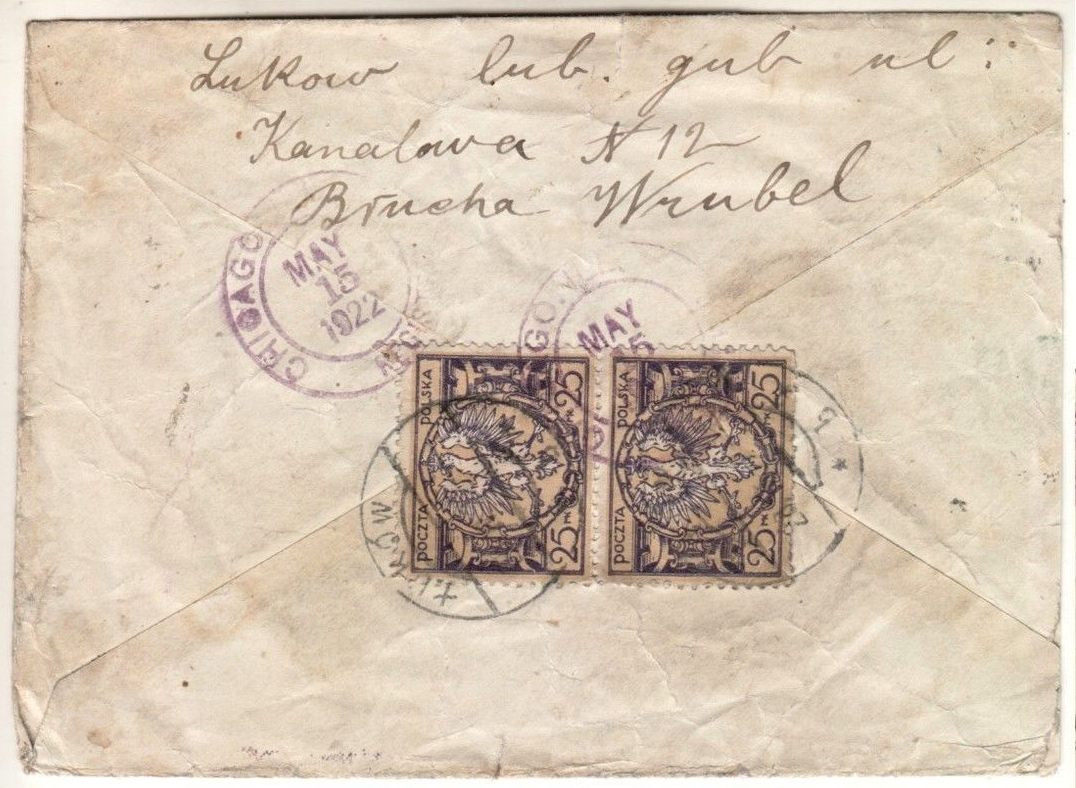 Lukow lub. gub ul:
Kanalowa N 12
Brucha Wrubel
CHICAGO
MAY
15
1922
GO.
MAY
15
POCZTA POLSKA
25 25
POCZTA POLSKA
25 25
ŁUKÓW